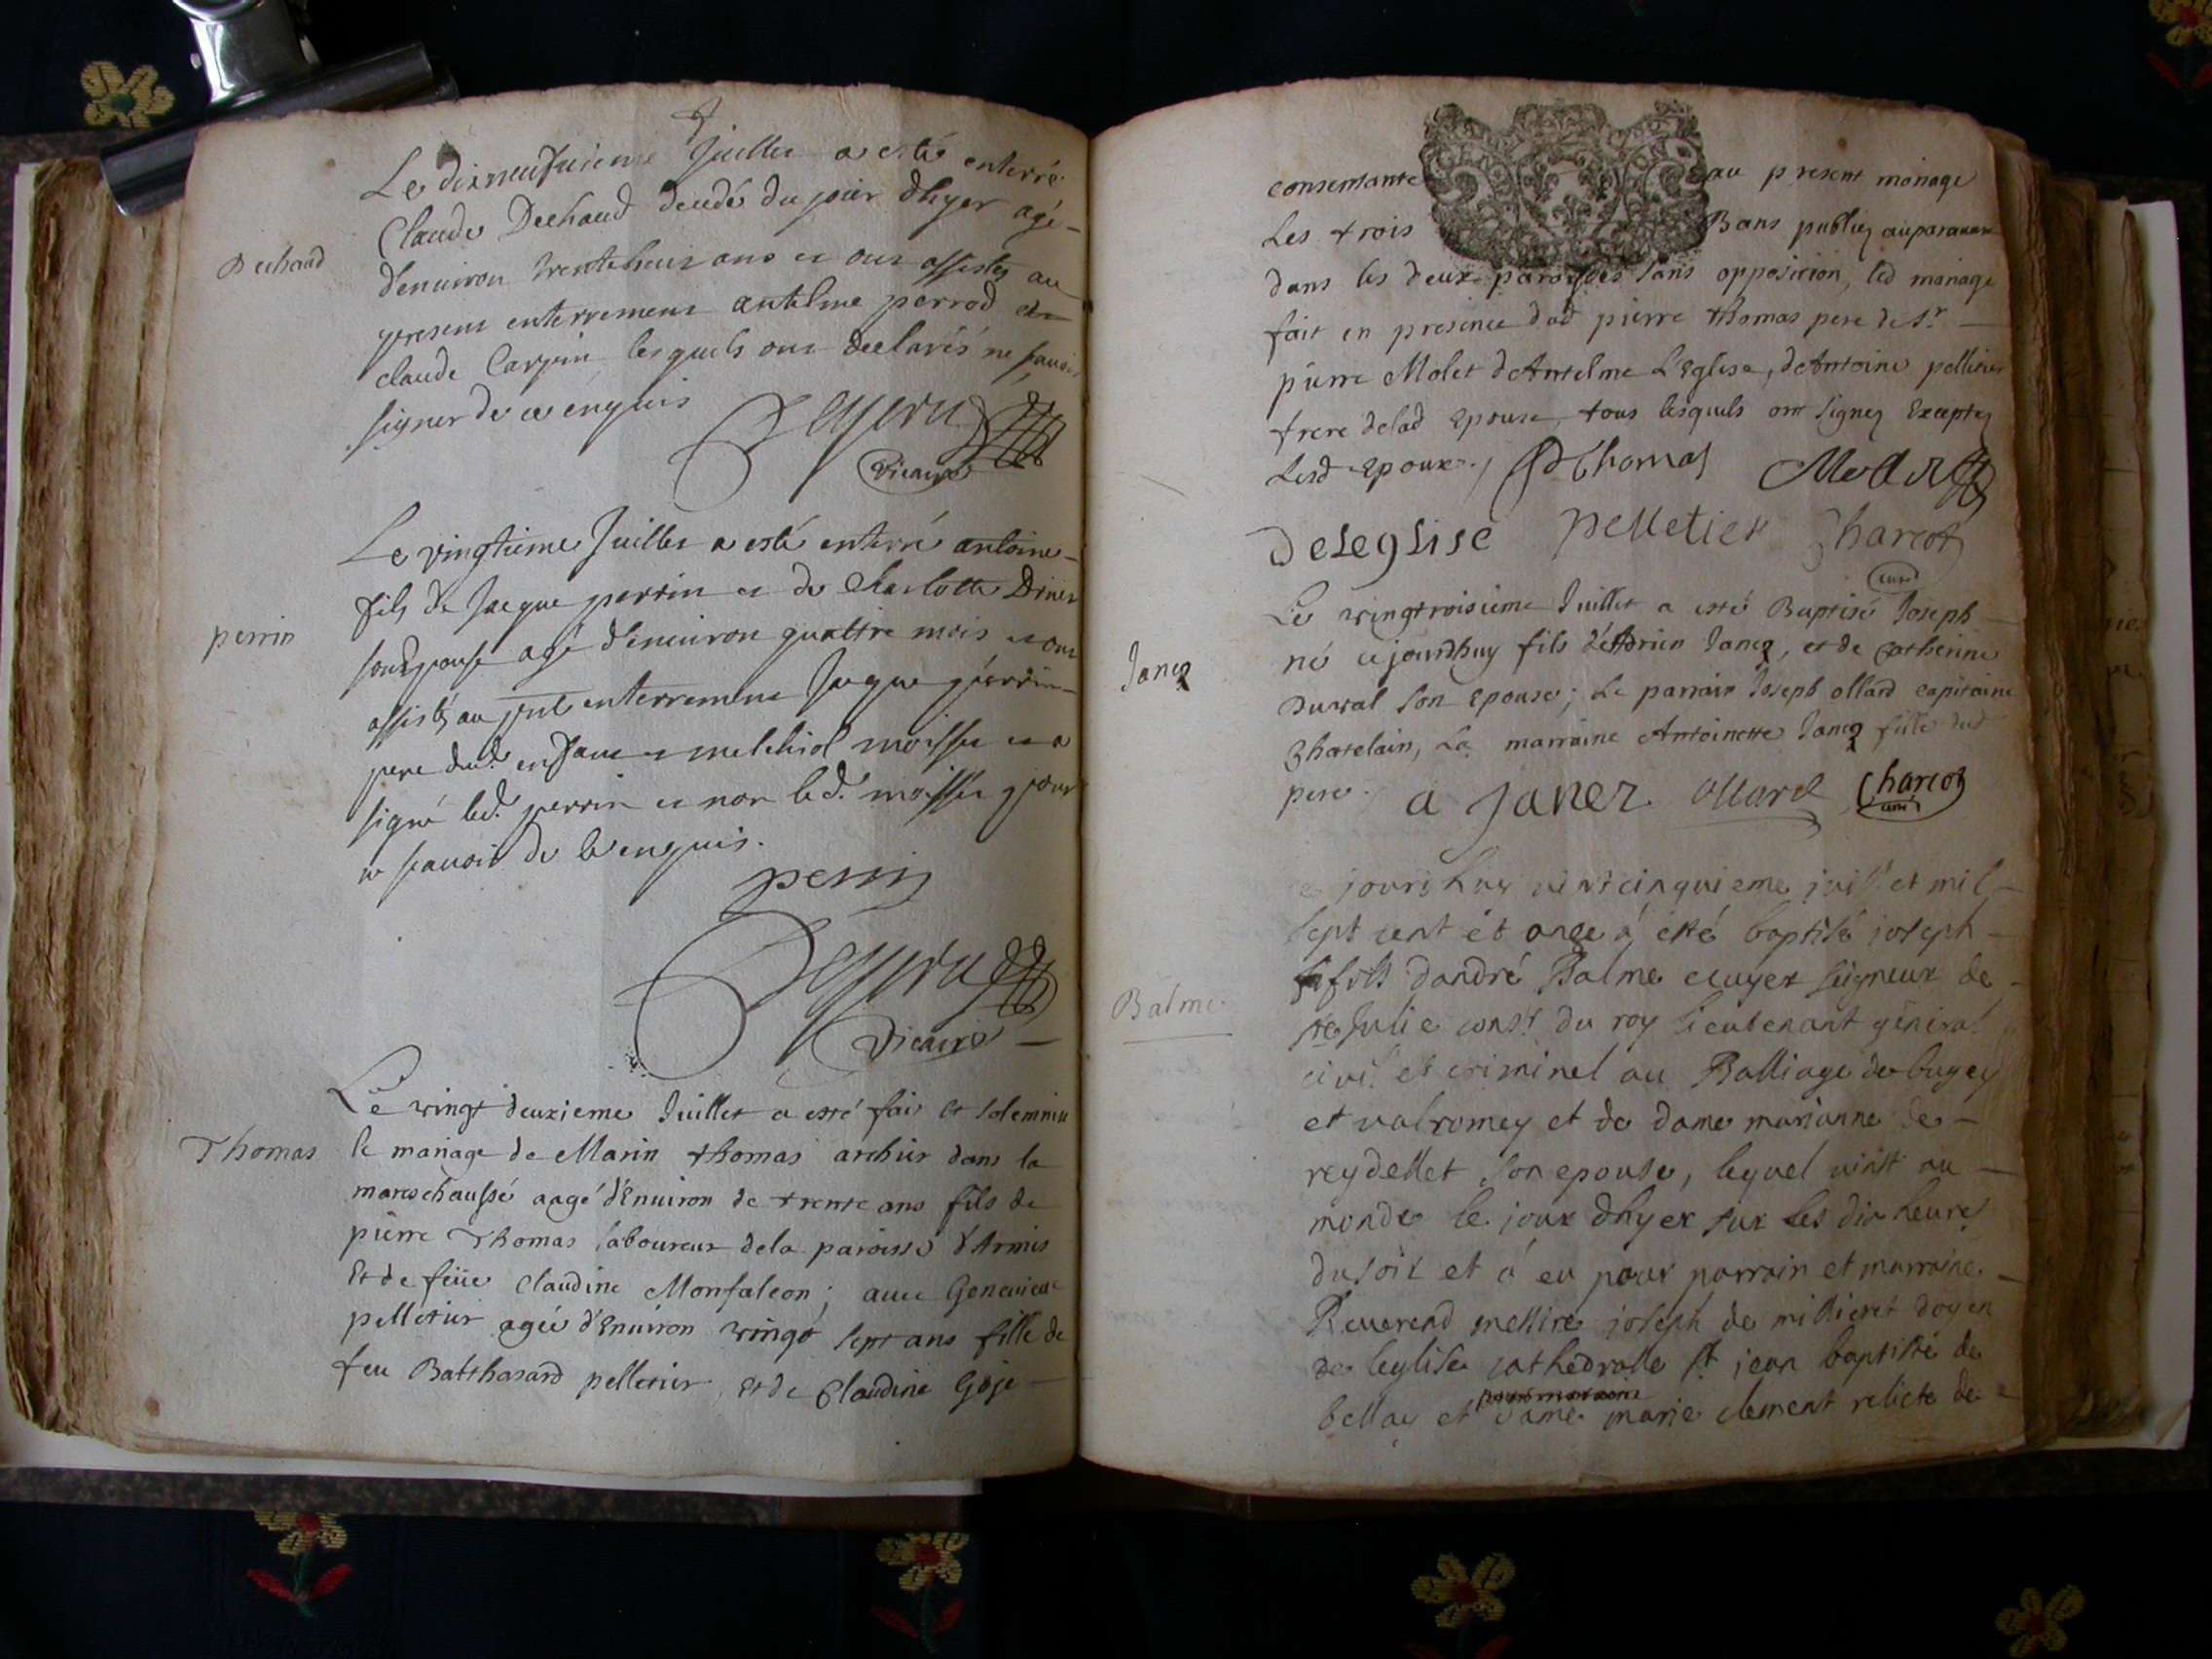 Le dixneufuieme Juillet a esté enterré
Claude Dechaud decedé du jour d'hyer agé
Dechaud
d'enuiron trentehuit ans et ont assistez au
present enterrement antelme perrod et
claude Carpin lesquels ont declarés ne scauoir
signer de ce enquis
Vicaire
Le vingtieme Juillet a esté enterré antoine
fils de Jacque perrin et de Charlotte
perrin
son Epouse agé d'enuiron quattre mois et ont
assistés au pnt enterrement Jacque perrin
pere dud. enfant et melchiol moissis et a
signé led. perrin et non led. moissis pour
ne scauoir de ce enquis.
perrin
Vicaire
Le vingt deuxieme Juillet a esté fait et solemnisé
Thomas
le mariage de Marin thomas archier dans la
mareschaussé aagé d'Enuiron de trente ans fils de
pierre Thomas laboureur dela paroisse d'Armis
Et de feüe Claudine Monfalcon; auec Geneuieue
pelletier agée d'Enuiron vingt sept ans fille de
feu Batthasard pelletier, Et de Claudine Goje
consentante au present mariage
Les trois Bans publiez auparauant
dans les deux paroisses sans opposition, led mariage
fait en presence dud pierre thomas pere de Sr
pierre Molet d'Antelme L'Eglise, d'Antoine pelletier
frere delad Epouse, tous lesquels ont signez Exceptez
Lesd Epoux. P Thomas Mollet
DeLegLise pelletier Charcot
curé
Le vingtroisieme Juillet a esté Baptisé Joseph
Janez
né cejourdhuy fils d'Adrien Janez, et de Catherine
Duval son Epouse; Le parrain Joseph ollard capitaine
Chatelain, La marraine Antoinette Janez fille dud
pere. a Janez ollard Charcot
curé
ce jourdhuy vint cinquieme juillet mil
sept cent et onze à esté baptisé joseph
fils d'andré Balme ecuyer seigneur de
Balme
ste Julie consr du roy lieutenant géneral
ciuil et criminel au Balliage de bugey
et valromey et de dame marianne de
reydellet son epouse, lequel vint au
monde le jour d'hyer sur les dix heures
du soir et à eu pour parrain et marraine
Reuerend messire joseph de millieret doyen
de leglise cathedralle st jean baptiste de
bellay et dame marie clement relicte de